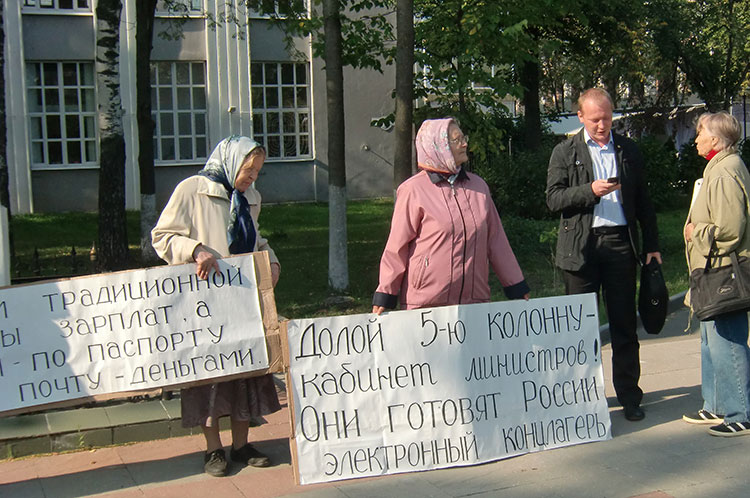 ТРАДИЦИОННОЙ
ЗАРПЛАТ, А
- ПО ПАСПОРТУ
ПОЧТУ - ДЕНЬГАМИ.
ДОЛОЙ 5-Ю КОЛОННУ -
КАБИНЕТ МИНИСТРОВ!
ОНИ ГОТОВЯТ РОССИИ
ЭЛЕКТРОННЫЙ КОНЦЛАГЕРЬ